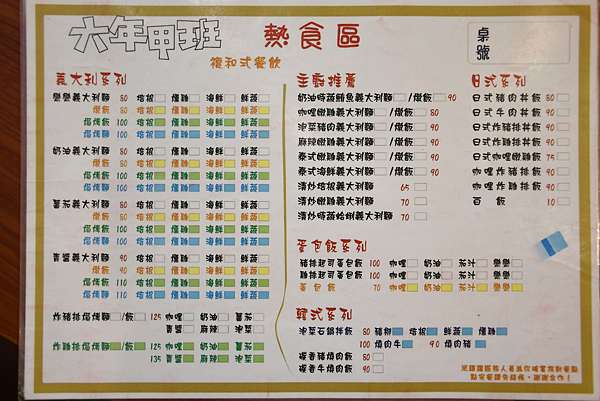 六年甲班 熱食區
複和式餐飲
桌號
義大利系列
義大利麵 80 培根 燻雞 海鮮 鮮蔬
燉飯 80 培根 燻雞 海鮮 鮮蔬
焗烤麵 100 培根 燻雞 海鮮 鮮蔬
焗烤飯 100 培根 燻雞 海鮮 鮮蔬
奶油義大利麵 80 培根 燻雞 海鮮 鮮蔬
燉飯 80 培根 燻雞 海鮮 鮮蔬
焗烤麵 100 培根 燻雞 海鮮 鮮蔬
焗烤飯 100 培根 燻雞 海鮮 鮮蔬
義大利麵 80 培根 燻雞 海鮮 鮮蔬
燉飯 80 培根 燻雞 海鮮 鮮蔬
焗烤麵 100 培根 燻雞 海鮮 鮮蔬
焗烤飯 100 培根 燻雞 海鮮 鮮蔬
青醬義大利麵 90 培根 燻雞 海鮮 鮮蔬
燉飯 90 培根 燻雞 海鮮 鮮蔬
焗烤麵 110 培根 燻雞 海鮮 鮮蔬
焗烤飯 110 培根 燻雞 海鮮 鮮蔬
炸豬排焗烤麵/飯 125 咖哩 奶油
青醬 泡菜
炸雞排焗烤麵/飯 125 咖哩 奶油
135 青醬 泡菜
主廚推薦
奶油時蔬鮭魚義大利麵/燉飯 90
咖哩燉雞義大利麵/燉飯 80
泡菜豬肉義大利麵/燉飯 80
麻辣燉雞義大利麵/燉飯 90
泰式燉雞義大利麵/燉飯 90
泰式海鮮義大利麵/燉飯 80
清炒培根義大利麵 65
清炒燻雞義大利麵 70
清炒時蔬蛤蜊義大利麵 70
蛋包飯系列
豬排起司蛋包飯 100 咖哩 奶油 茄汁
雞排起司蛋包飯 100 咖哩 奶油 茄汁
蛋包飯 70 咖哩 奶油 茄汁
韓式系列
泡菜石鍋拌飯 80 豬柳 培根 鮮蔬 燻雞
100 燒肉牛 90 燒肉豬
豬燒肉飯 80
牛燒肉飯 90
日式系列
日式豬肉丼飯 80
日式牛肉丼飯 90
日式炸豬排丼飯 90
日式炸雞排丼飯 90
日式咖哩燉雞飯 75
咖哩炸豬排飯 90
咖哩炸雞排飯 90
白飯 10